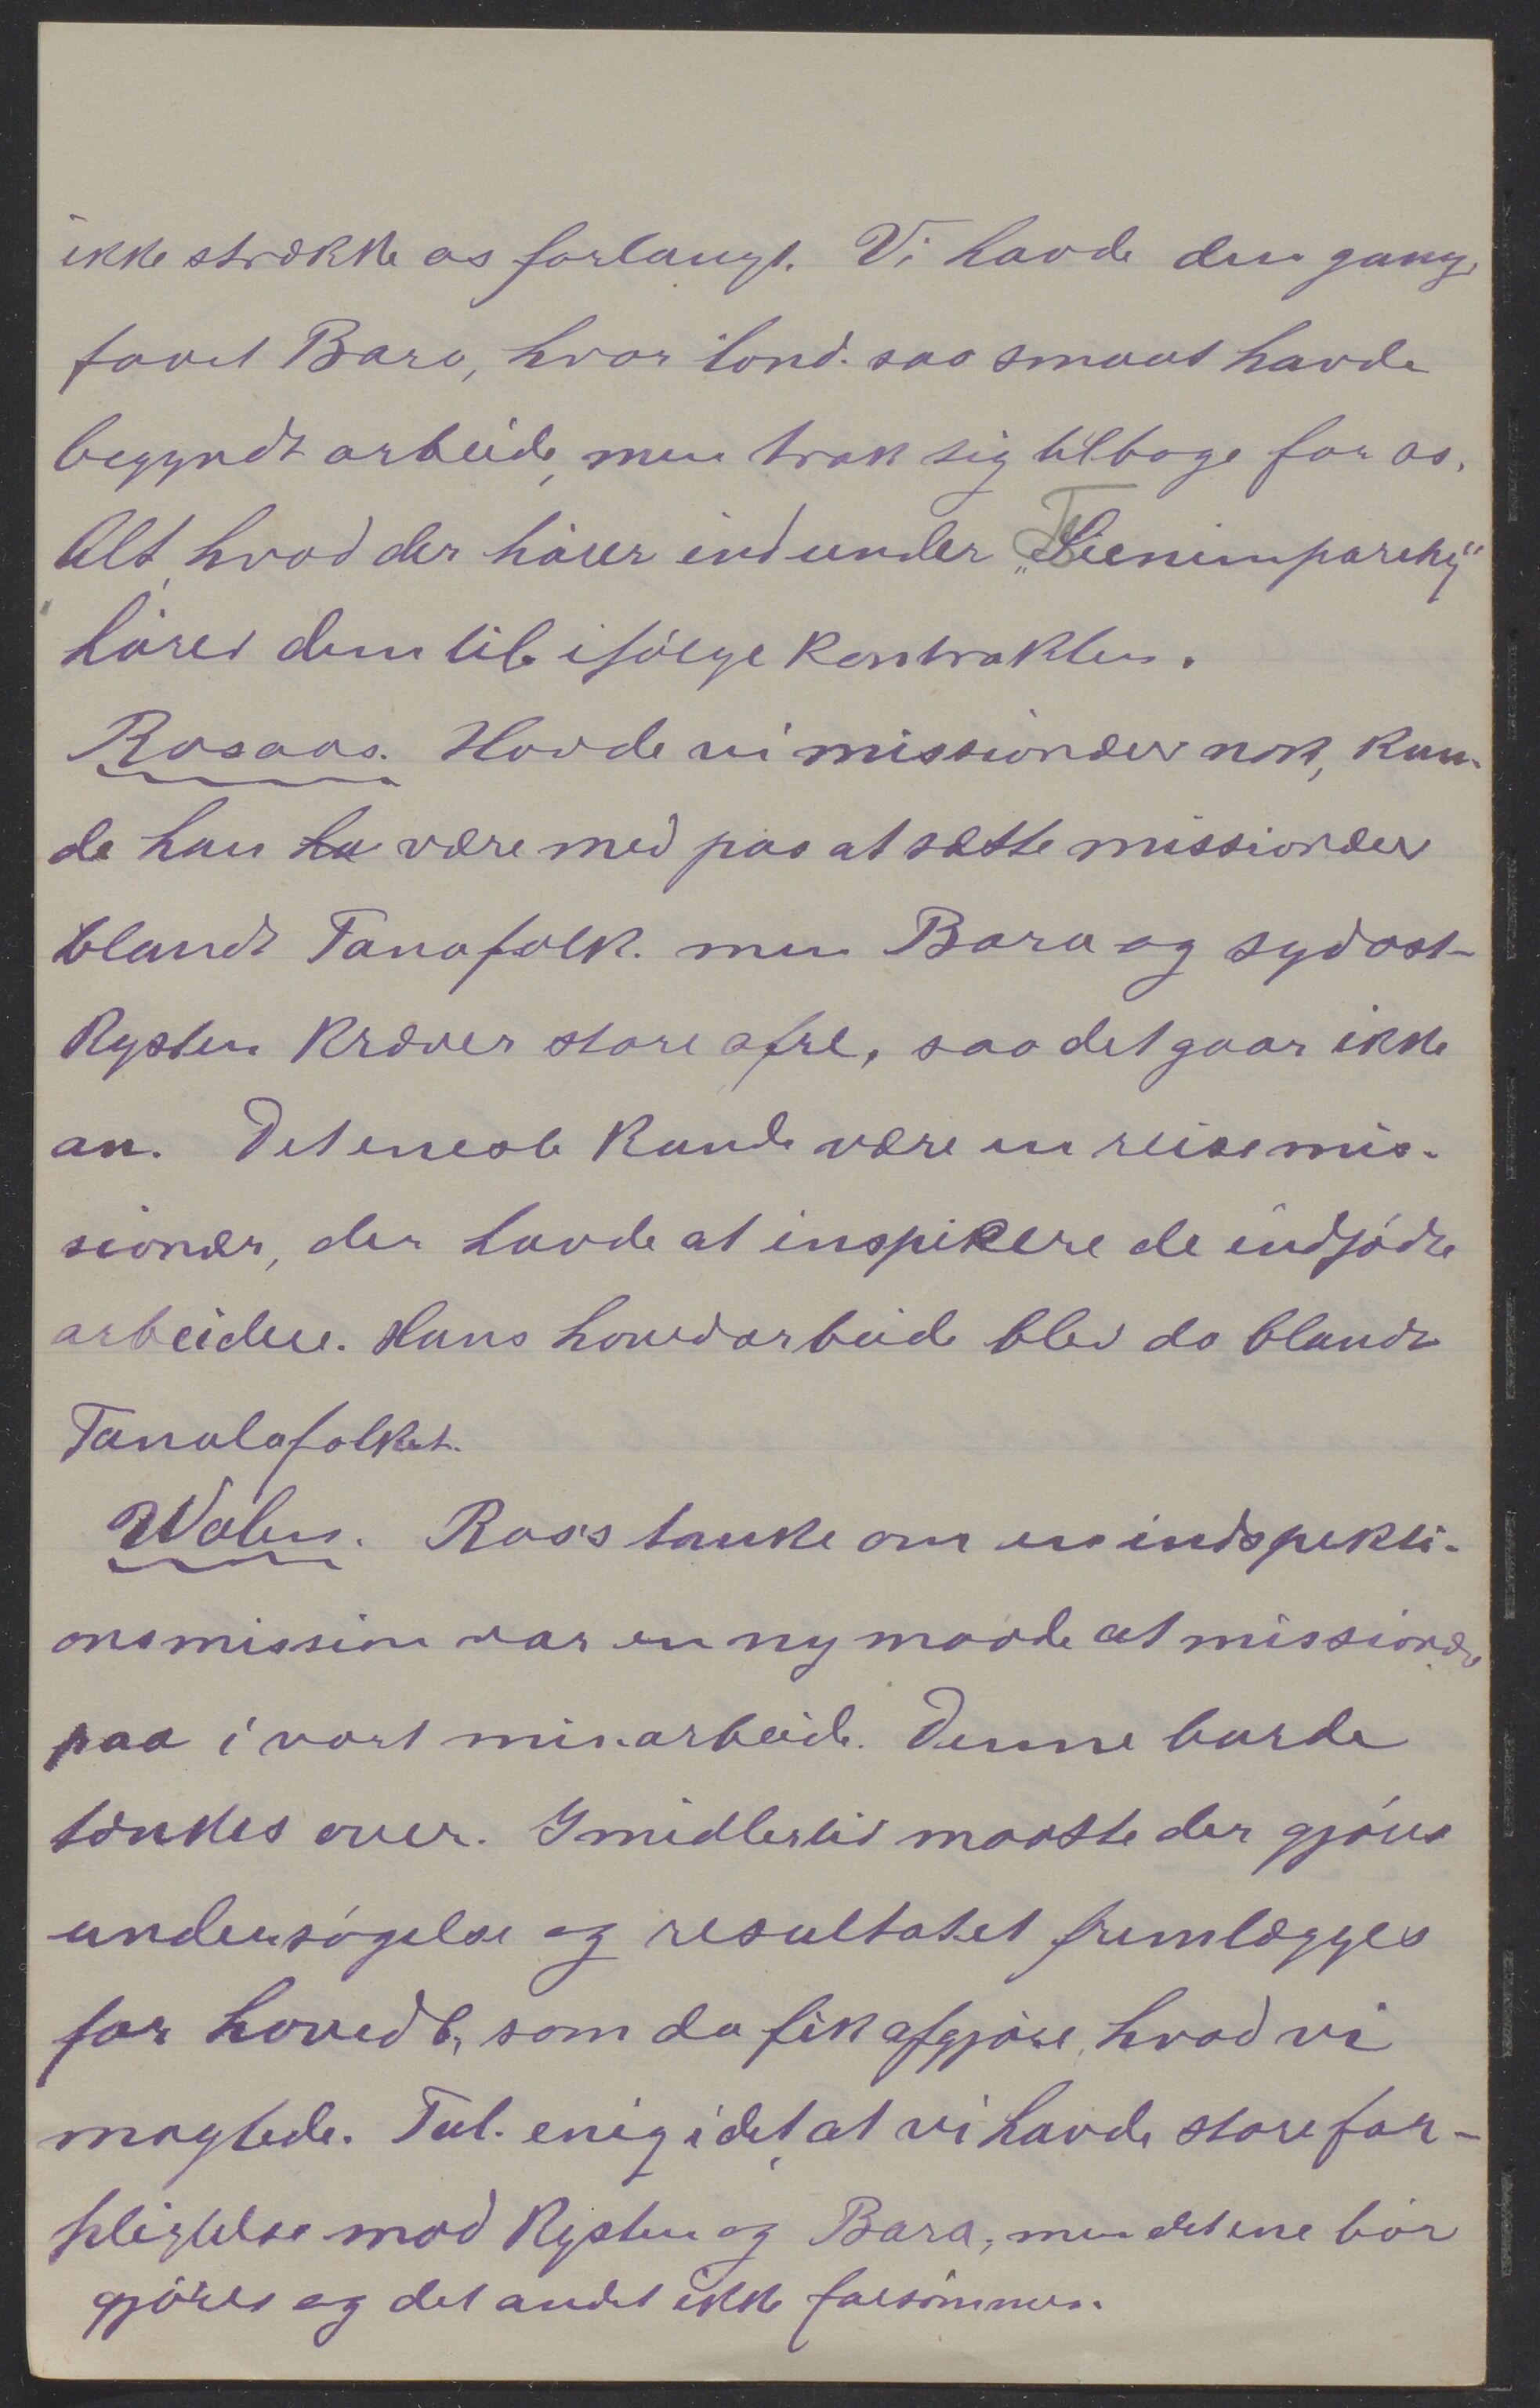 ikke strække os forlangt. Vi havde den gang
faaet Bara, hvor lond. saa smaat havde
begyndt arbeide, men trak sig tilbage for os.
Alt, hvad der hører ind under
hører dem til ifølge kontrakten.
Rosaas. Havde vi missionærer nok, kun-
de han ha være med paa at sætte missionærer
blandt Tanafolk. men Bara og sydøst-
kysten kræver store ofre, saa det gaar ikke
an. Det eneste kunde være en reisemis-
sionær, der havde at inspicere de indfødte
arbeidere. Hans hovedarbeide blev da blandt
Tanalafolket.
Walen. Ros's tanke om en indspekti-
onsmission var en ny maade at missionære
paa i vort mis.arbeide. Denne burde
tænkes over. Imidlertid maatte der gjøres
undersøgelse og resultatet fremlægges
for hovedb, som da fik afgjøre, hvad vi
magtede. Tal. enig i det, at vi havde store for-
pligtelse mod Kysten og Bara, men det ene bør
gjøres og det andet ikke forsømmes.